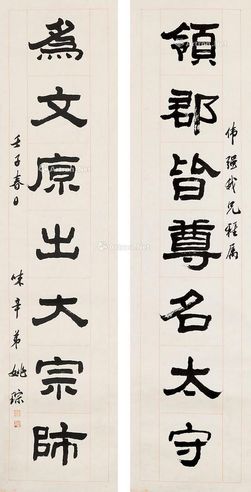 領郡皆尊名太守
伟强我兄雅属
為文原出大宗師
壬子春日
味辛弟姚琮